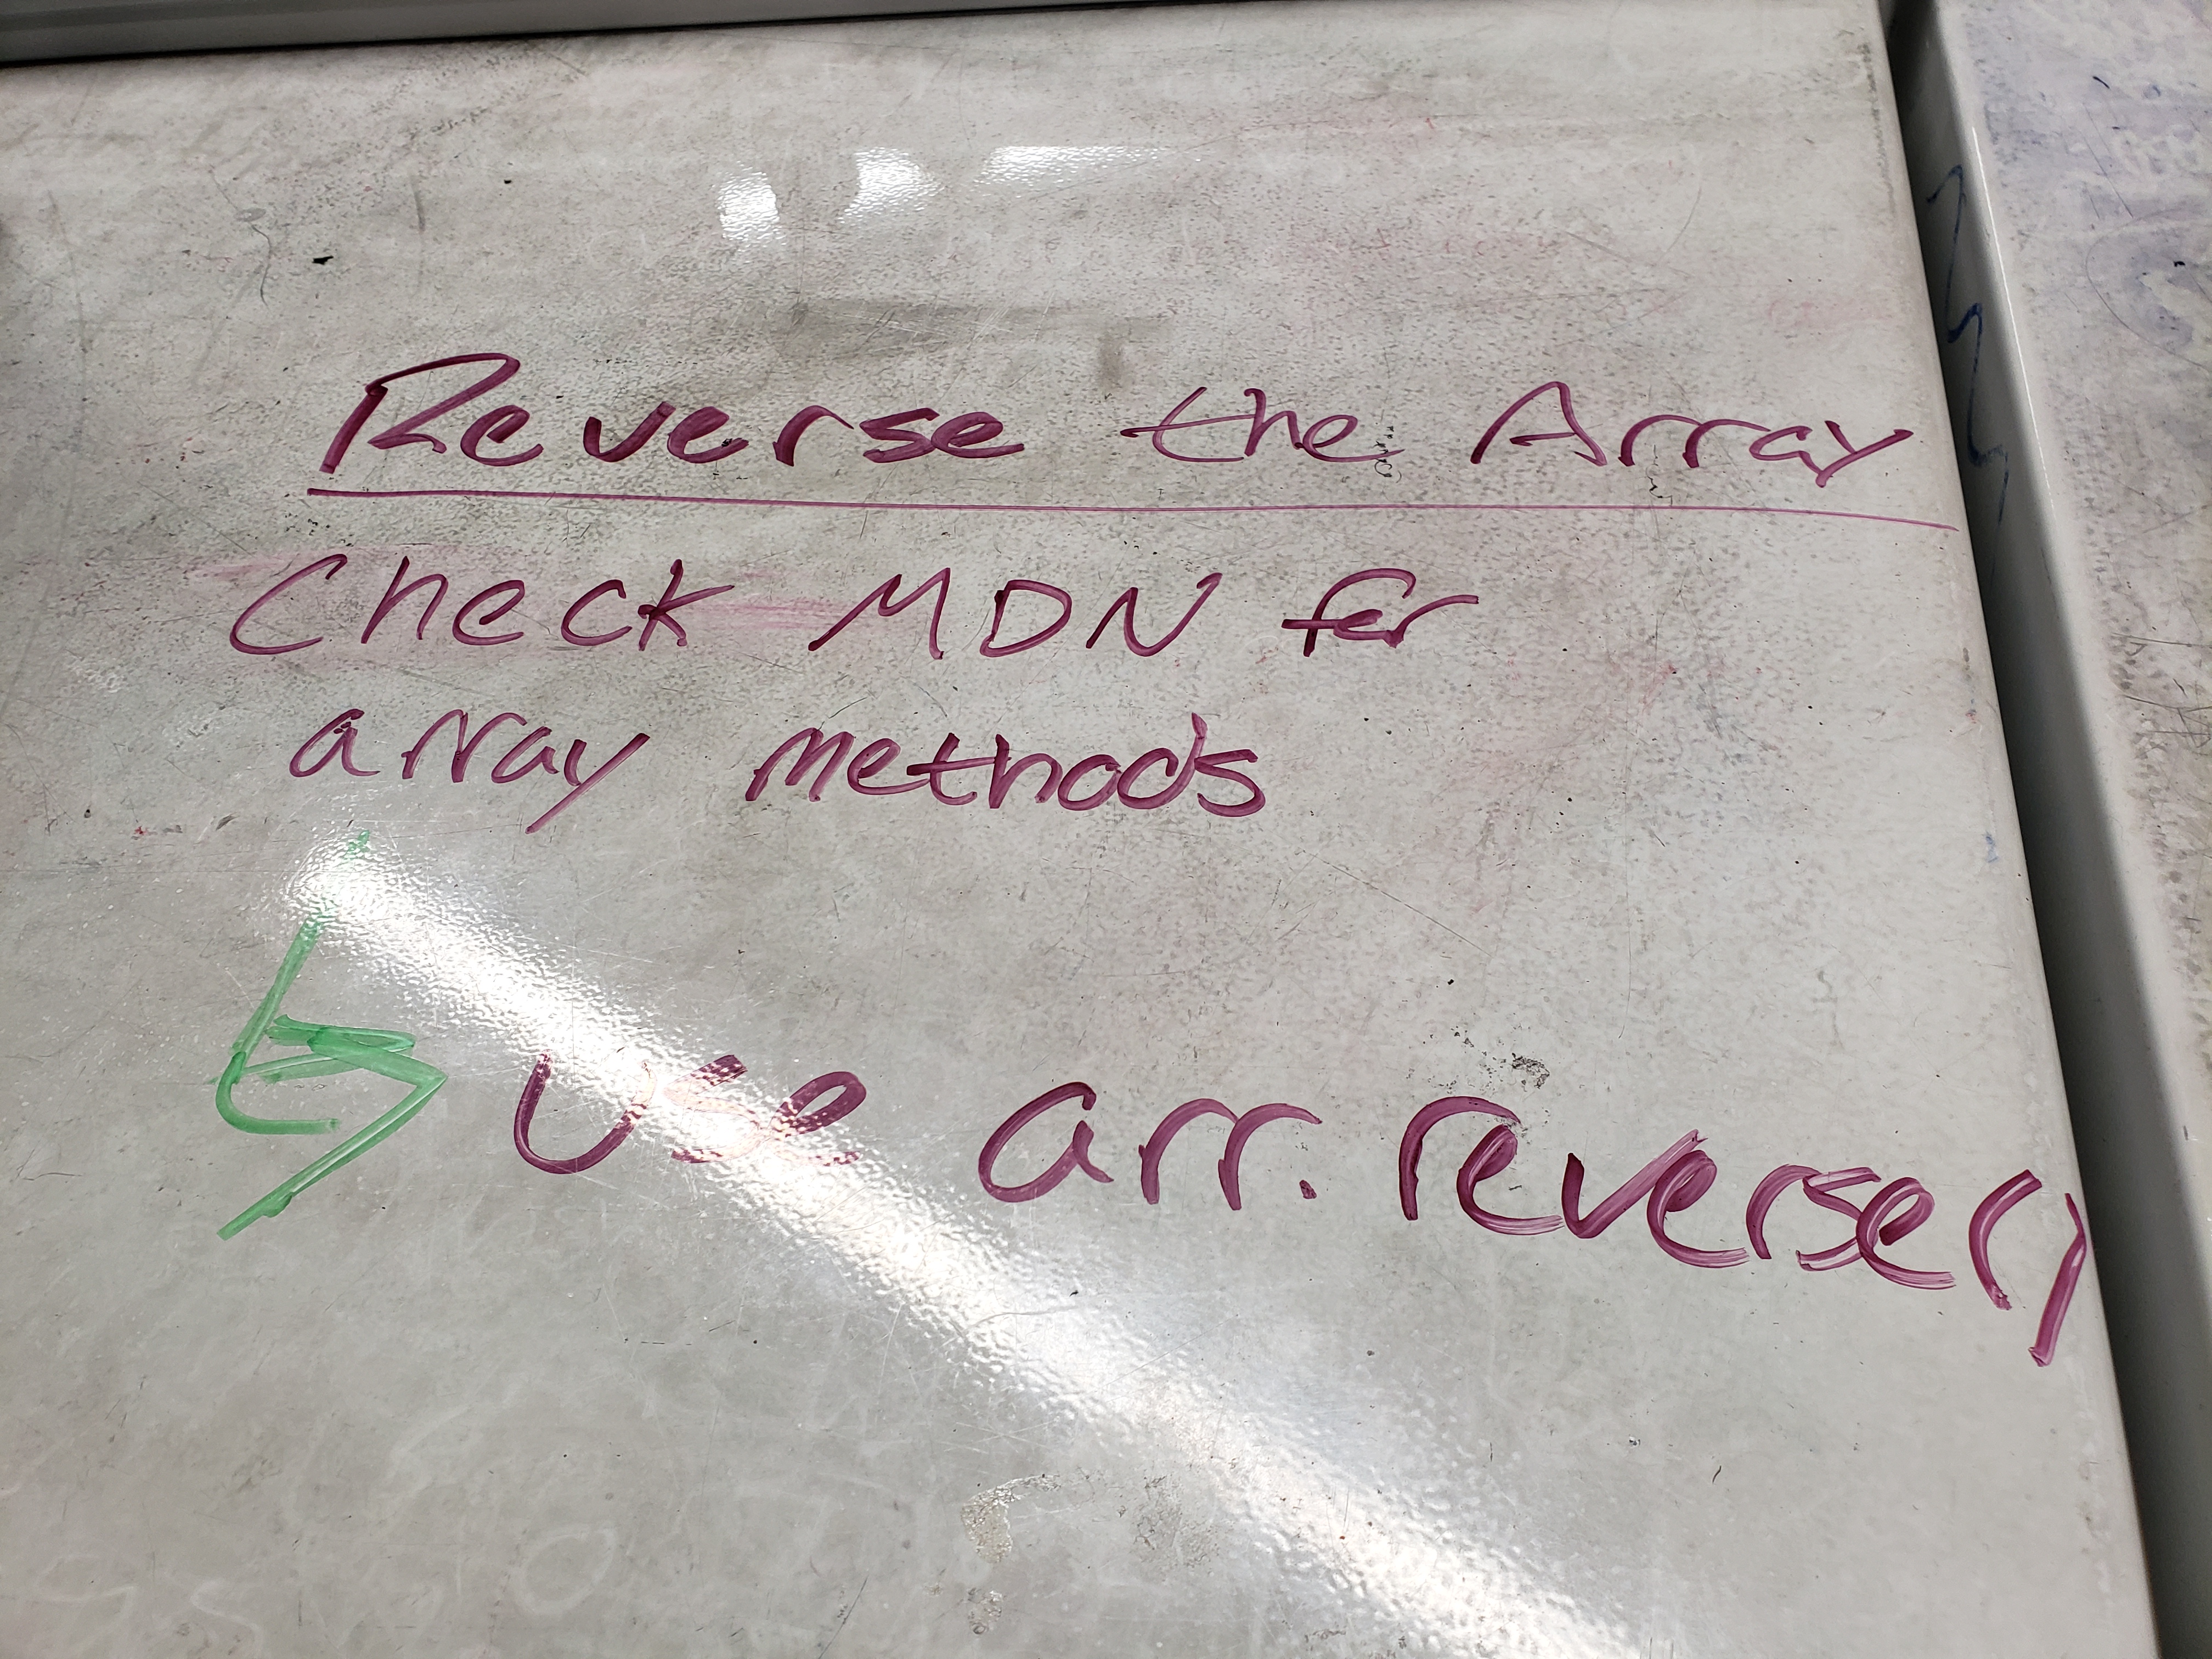 Reverse the Array
Check MDN for
array methods
Use arr.reverse()